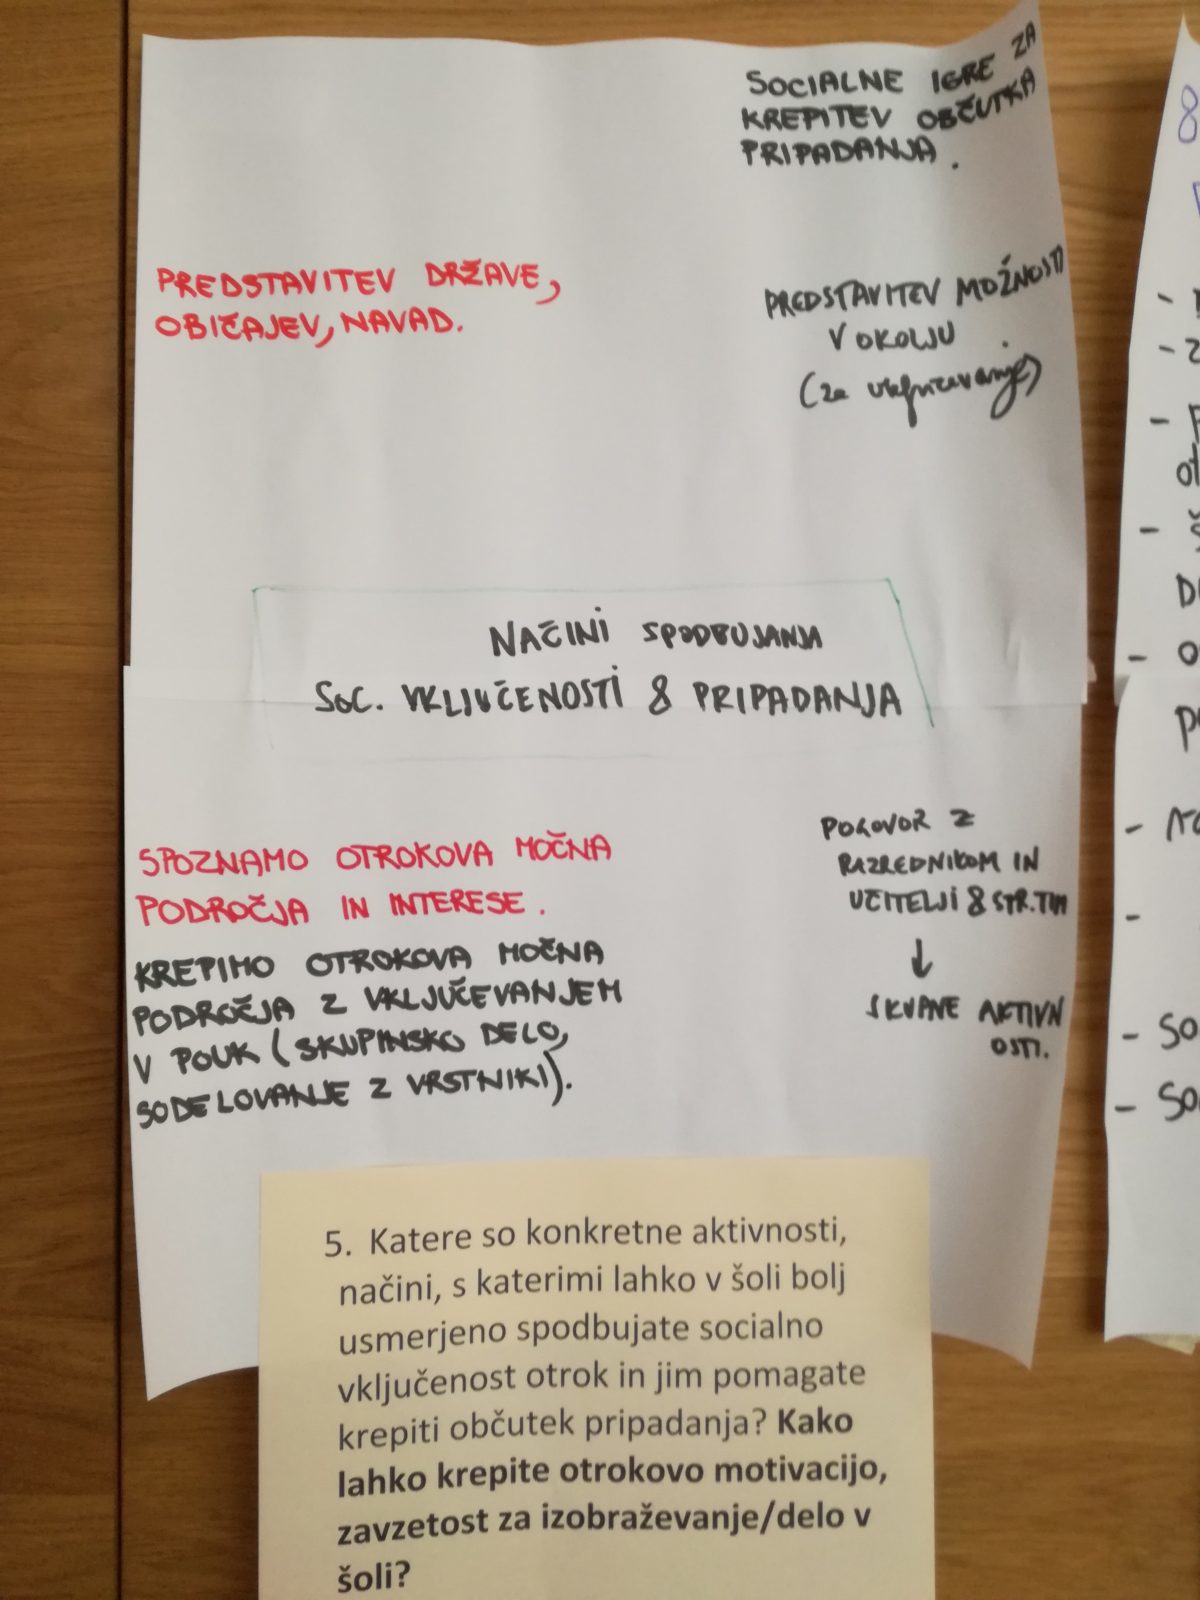 SOCIALNE IGRE ZA
KREPITEV OBČUTKA
PRIPADANJA.
PREDSTAVITEV DRŽAVE,
OBIČAJEV, NAVAD.
PREDSTAVITEV MOŽNOSTI
V OKOLJU
(za vključevanje)
NAČINI SPODBUJANJA
SOC. VKLJUČENOSTI & PRIPADANJA
SPOZNAMO OTROKOVA MOČNA
PODROČJA IN INTERESE.
KREPIMO OTROKOVA MOČNA
PODROČJA Z VKLJUČEVANJEM
V POUK (SKUPINSKO DELO,
SODELOVANJE Z VRSTNIKI).
POGOVOR Z
RAZREDNIKOM IN
UČITELJI & STR. TIM
↓
AKTIVN
OSTI.
5. Katere so konkretne aktivnosti,
načini, s katerimi lahko v šoli bolj
usmerjeno spodbujate socialno
vključenost otrok in jim pomagate
krepiti občutek pripadanja? Kako
lahko krepite otrokovo motivacijo,
zavzetost za izobraževanje/delo v
šoli?